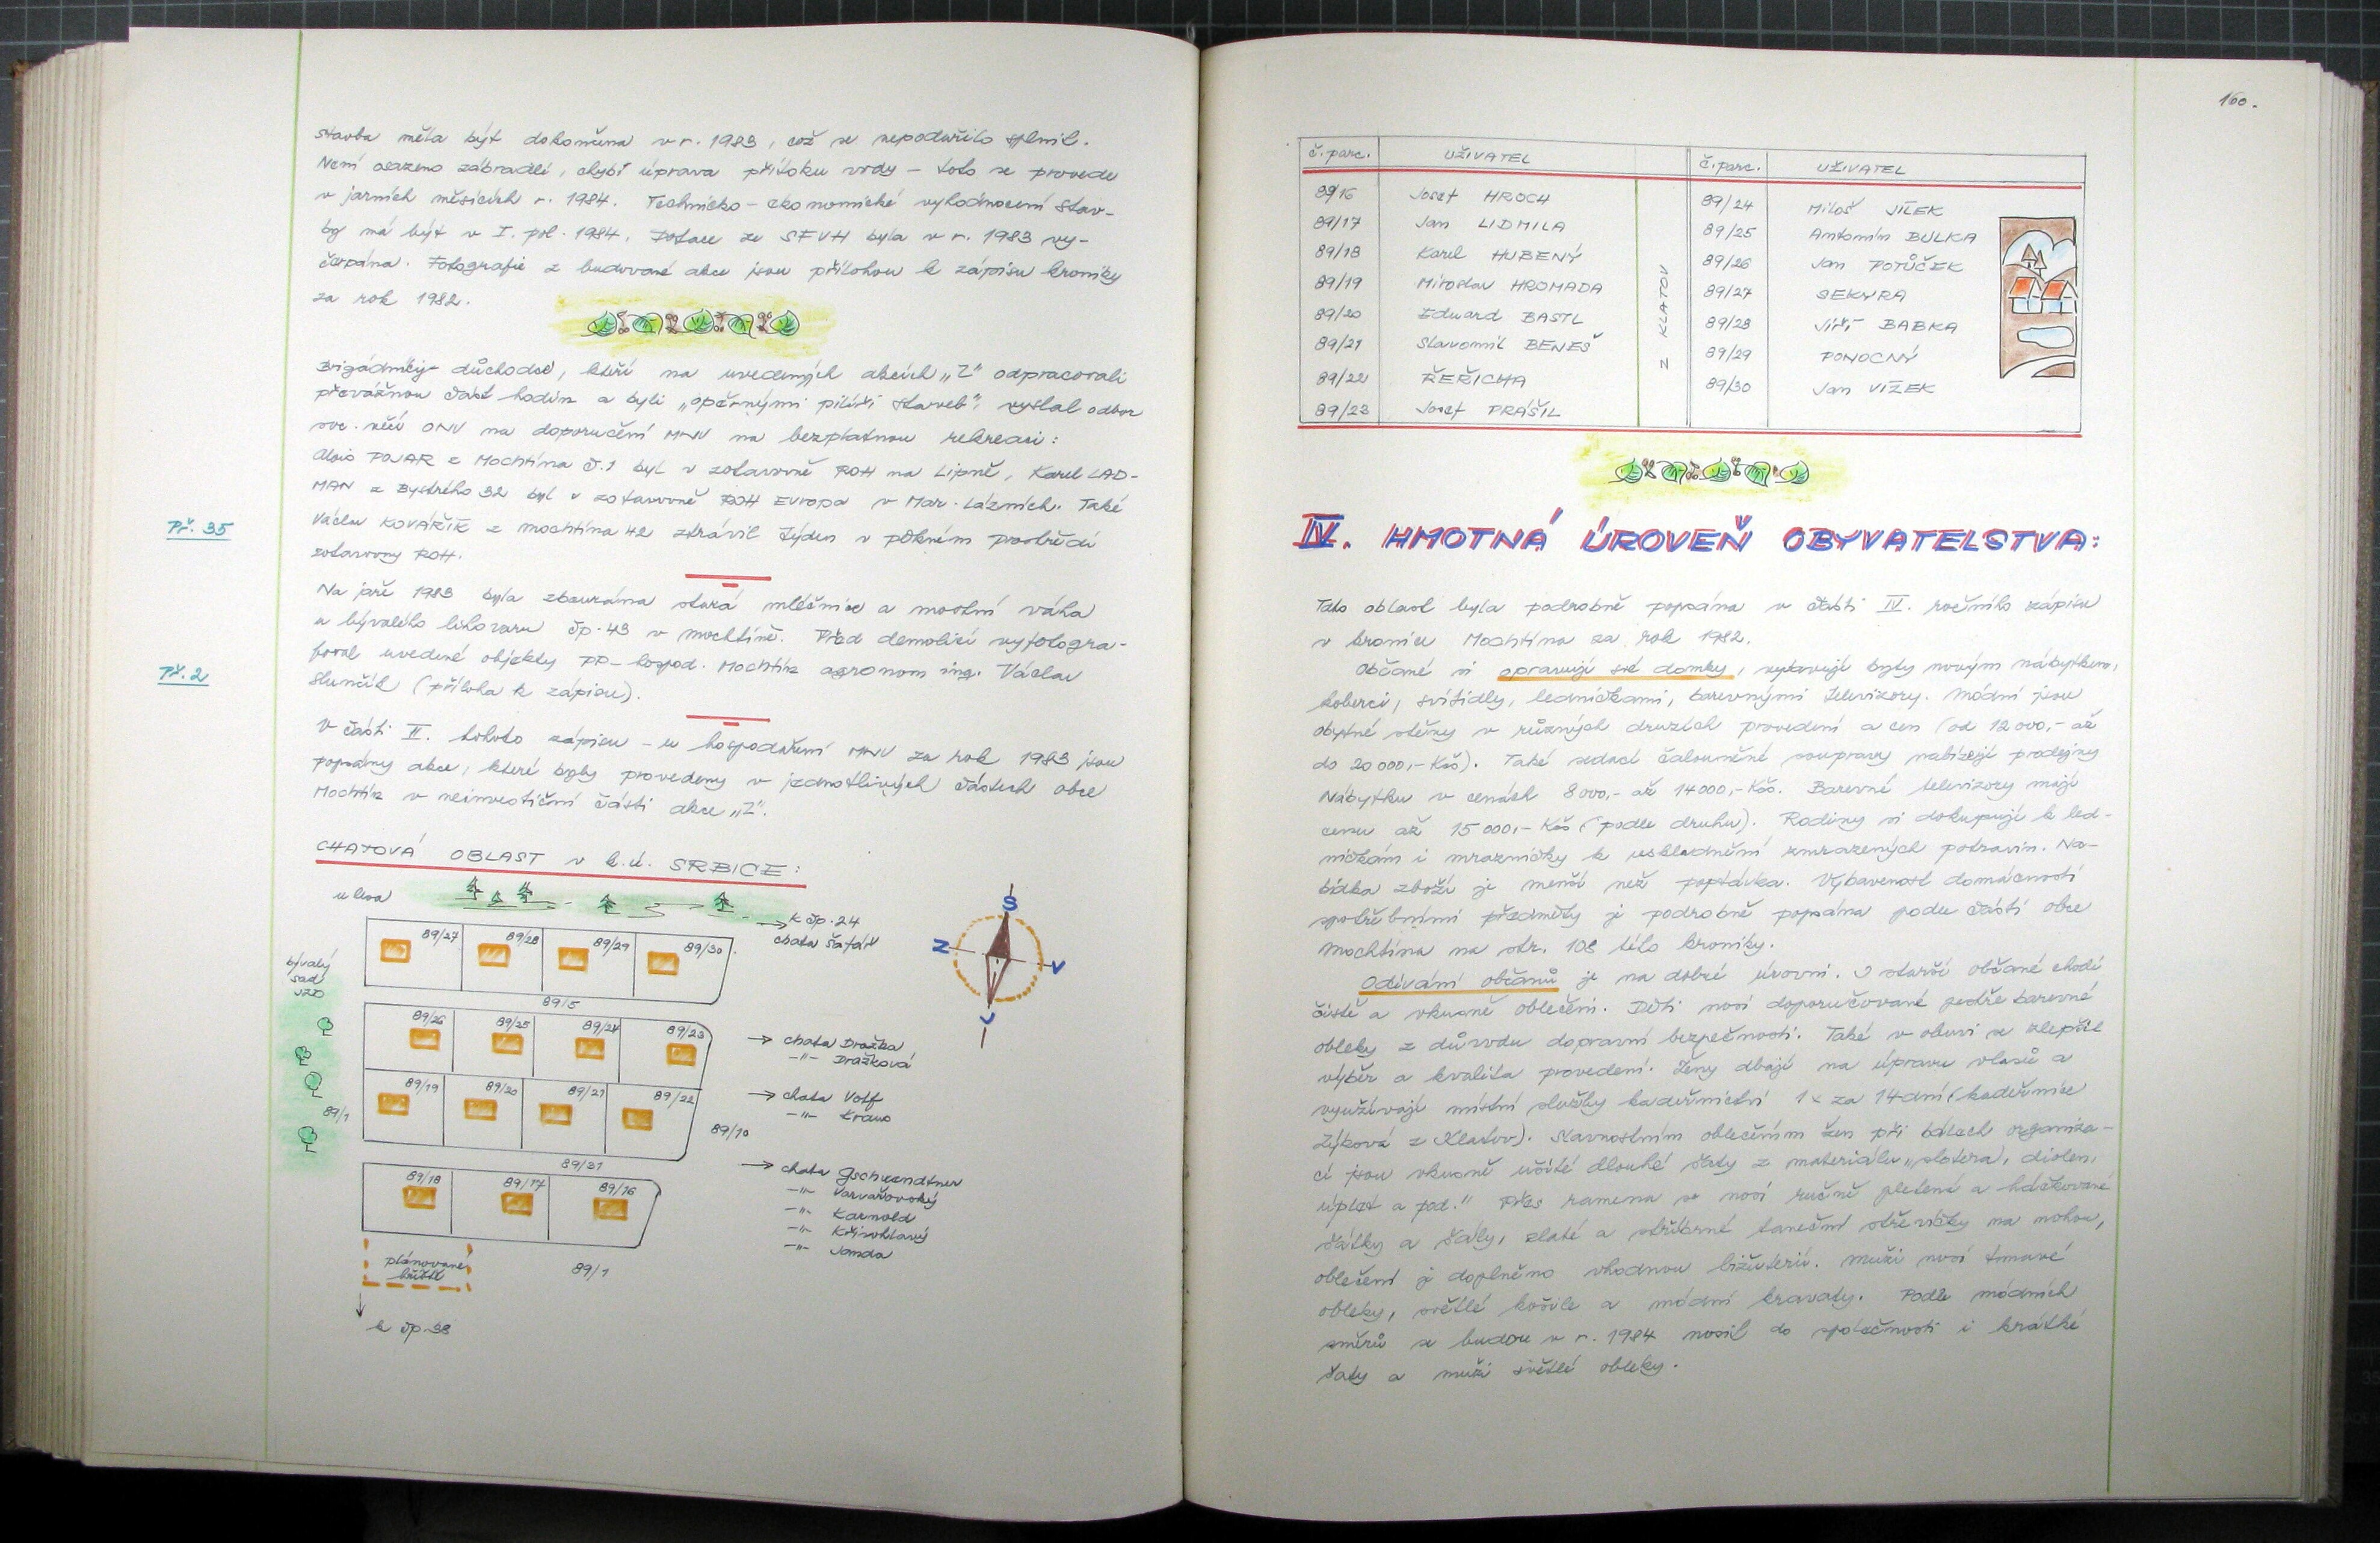 stavba měla být dokončena v r. 1983, což se nepodařilo splnit.
Není osazeno zábradlí, chybí úprava přítoku vody – toto se provede
v jarních měsících r. 1984. Technicko – ekonomické vyhodnocení stav-
by má být v I. pol. 1984. Dotace ze SFVH byla v r. 1983 vy-
čerpána. Fotografie z budované akce jsou přílohou k zápisu kroniky
za rok 1982.
Brigádníky – důchodce, kteří na uvedených akcích „Z" odpracovali
převážnou část hodin a byli „opěrnými pilíři staveb", vyslal odbor
soc. věcí ONV na doporučení MNV na bezplatnou rekreaci:
Alois POJAR z Mochtína č.1 byl v zotavovně ROH na Lipně, Karel LAD-
MAN z Bystrého 32 byl v zotavovně ROH Evropa v Mar. Lázních. Také
Václav KOVÁŘÍK z Mochtína 42 strávil týden v pěkném prostředí
zotavovny ROH.
Př. 35
Na jaře 1983 byla zbourána stará mléčnice a mostní váha
u bývalého lihovaru čp. 43 v Mochtíně. Před demolicí vyfotogra-
foval uvedené objekty PP – hospod. Mochtín agronom ing. Václav
Slunčík (příloha k zápisu).
Př. 2
V části II. tohoto zápisu – u hospodaření MNV za rok 1983 jsou
popsány akce, které byly provedeny v jednotlivých částech obce
Mochtín v neinvestiční části akce „Z".
CHATOVÁ OBLAST v k.ú. SRBICE:
u lesa
k čp. 24
chata Šafář
bývalý
sad
JZD
89/27
89/28
89/29
89/30
89/5
89/26
89/25
89/24
89/23
89/19
89/20
89/21
89/22
89/1
89/10
89/31
89/18
89/17
89/16
S
Z
V
J
chata Dražka
–"– Dražková
chata Volf
–"– Kraus
chata Gschwendtner
–"– Varvařovský
–"– Karnold
–"– Křivohlavý
–"– Janda
plánované
hřiště
89/1
k čp. 38
160.
č. parc. UŽIVATEL č. parc. UŽIVATEL
89/16 Josef HROCH 89/24 Miloš JÍLEK
89/17 Jan LIDMILA 89/25 Antonín BULKA
89/18 Karel HUBENÝ 89/26 Jan POTŮČEK
89/19 Miroslav HROMADA 89/27 SEKYRA
89/20 Eduard BASTL 89/28 Jiří BABKA
89/21 Slavomil BENEŠ 89/29 PONOCNÝ
89/22 ŘEŘICHA 89/30 Jan VÍZEK
89/23 Josef PRÁŠIL
Z KLATOV
IV. HMOTNÁ ÚROVEŇ OBYVATELSTVA:
Tato oblast byla podrobně popsána v části IV. ročního zápisu
v kronice Mochtína za rok 1982.
Občané si opravují své domky, vybavují byty novým nábytkem,
koberci, svítidly, ledničkami, barevnými televizory. Módní jsou
obytné stěny v různých druzích provedení a cen (od 12 000,- až
do 20 000,- Kčs). Také sedací čalouněné soupravy nabízejí prodejny
Nábytku v cenách 8 000,- až 14 000,- Kčs. Barevné televizory mají
cenu až 15 000,- Kčs (podle druhu). Rodiny si dokupují k led-
ničkám i mrazničky k uskladnění zmrazených potravin. Na-
bídka zboží je menší než poptávka. Vybavenost domácností
spotřebními předměty je podrobně popsána podle částí obce
Mochtína na str. 108 této kroniky.
Odívání občanů je na dobré úrovni. I starší občané chodí
čistě a vkusně oblečeni. Děti nosí doporučované pestře barevné
obleky z důvodu dopravní bezpečnosti. Také v obuvi se zlepšil
výběr a kvalita provedení. Ženy dbají na úpravu vlasů a
využívají místní služby kadeřnictví 1x za 14 dní (kadeřnice
Zýková z Klatov). Slavnostním oblečením žen při bálech organiza-
cí jsou vkusně ušité dlouhé šaty z materiálu „slotera, diolen,
úplet a pod." Přes ramena se nosí ručně pletené a háčkované
šátky a šály, zlaté a stříbrné taneční střevíčky na nohou,
oblečení je doplněno vhodnou bižuterií. Muži nosí tmavé
obleky, světlé košile a módní kravaty. Podle módních
směrů se budou v r. 1984 nosit do společnosti i krátké
šaty a muži světlé obleky.